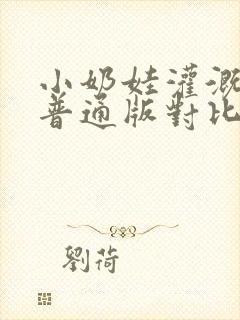 小奶娃灌溉
普通版對比
劉荷